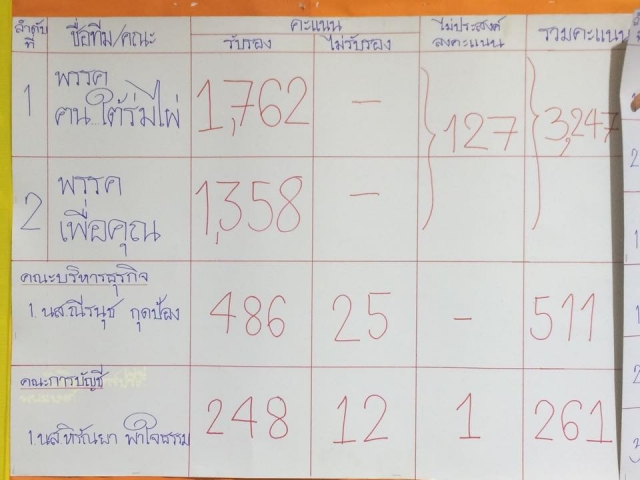 ลำดับที่ ชื่อทีม/คณะ คะแนน ไม่ประสงค์ลงคะแนน รวมคะแนน
รับรอง ไม่รับรอง
1 พรรค
คนใต้ร่มไผ่ 1,762 — 127 3,247
2 พรรค
เพื่อคุณ 1,358 —
คณะบริหารธุรกิจ
1. นส.ณีรนุช กุดป้อง 486 25 - 511
คณะการบัญชี
1. นส.หิรัณยา พาใจธรรม 248 12 1 261